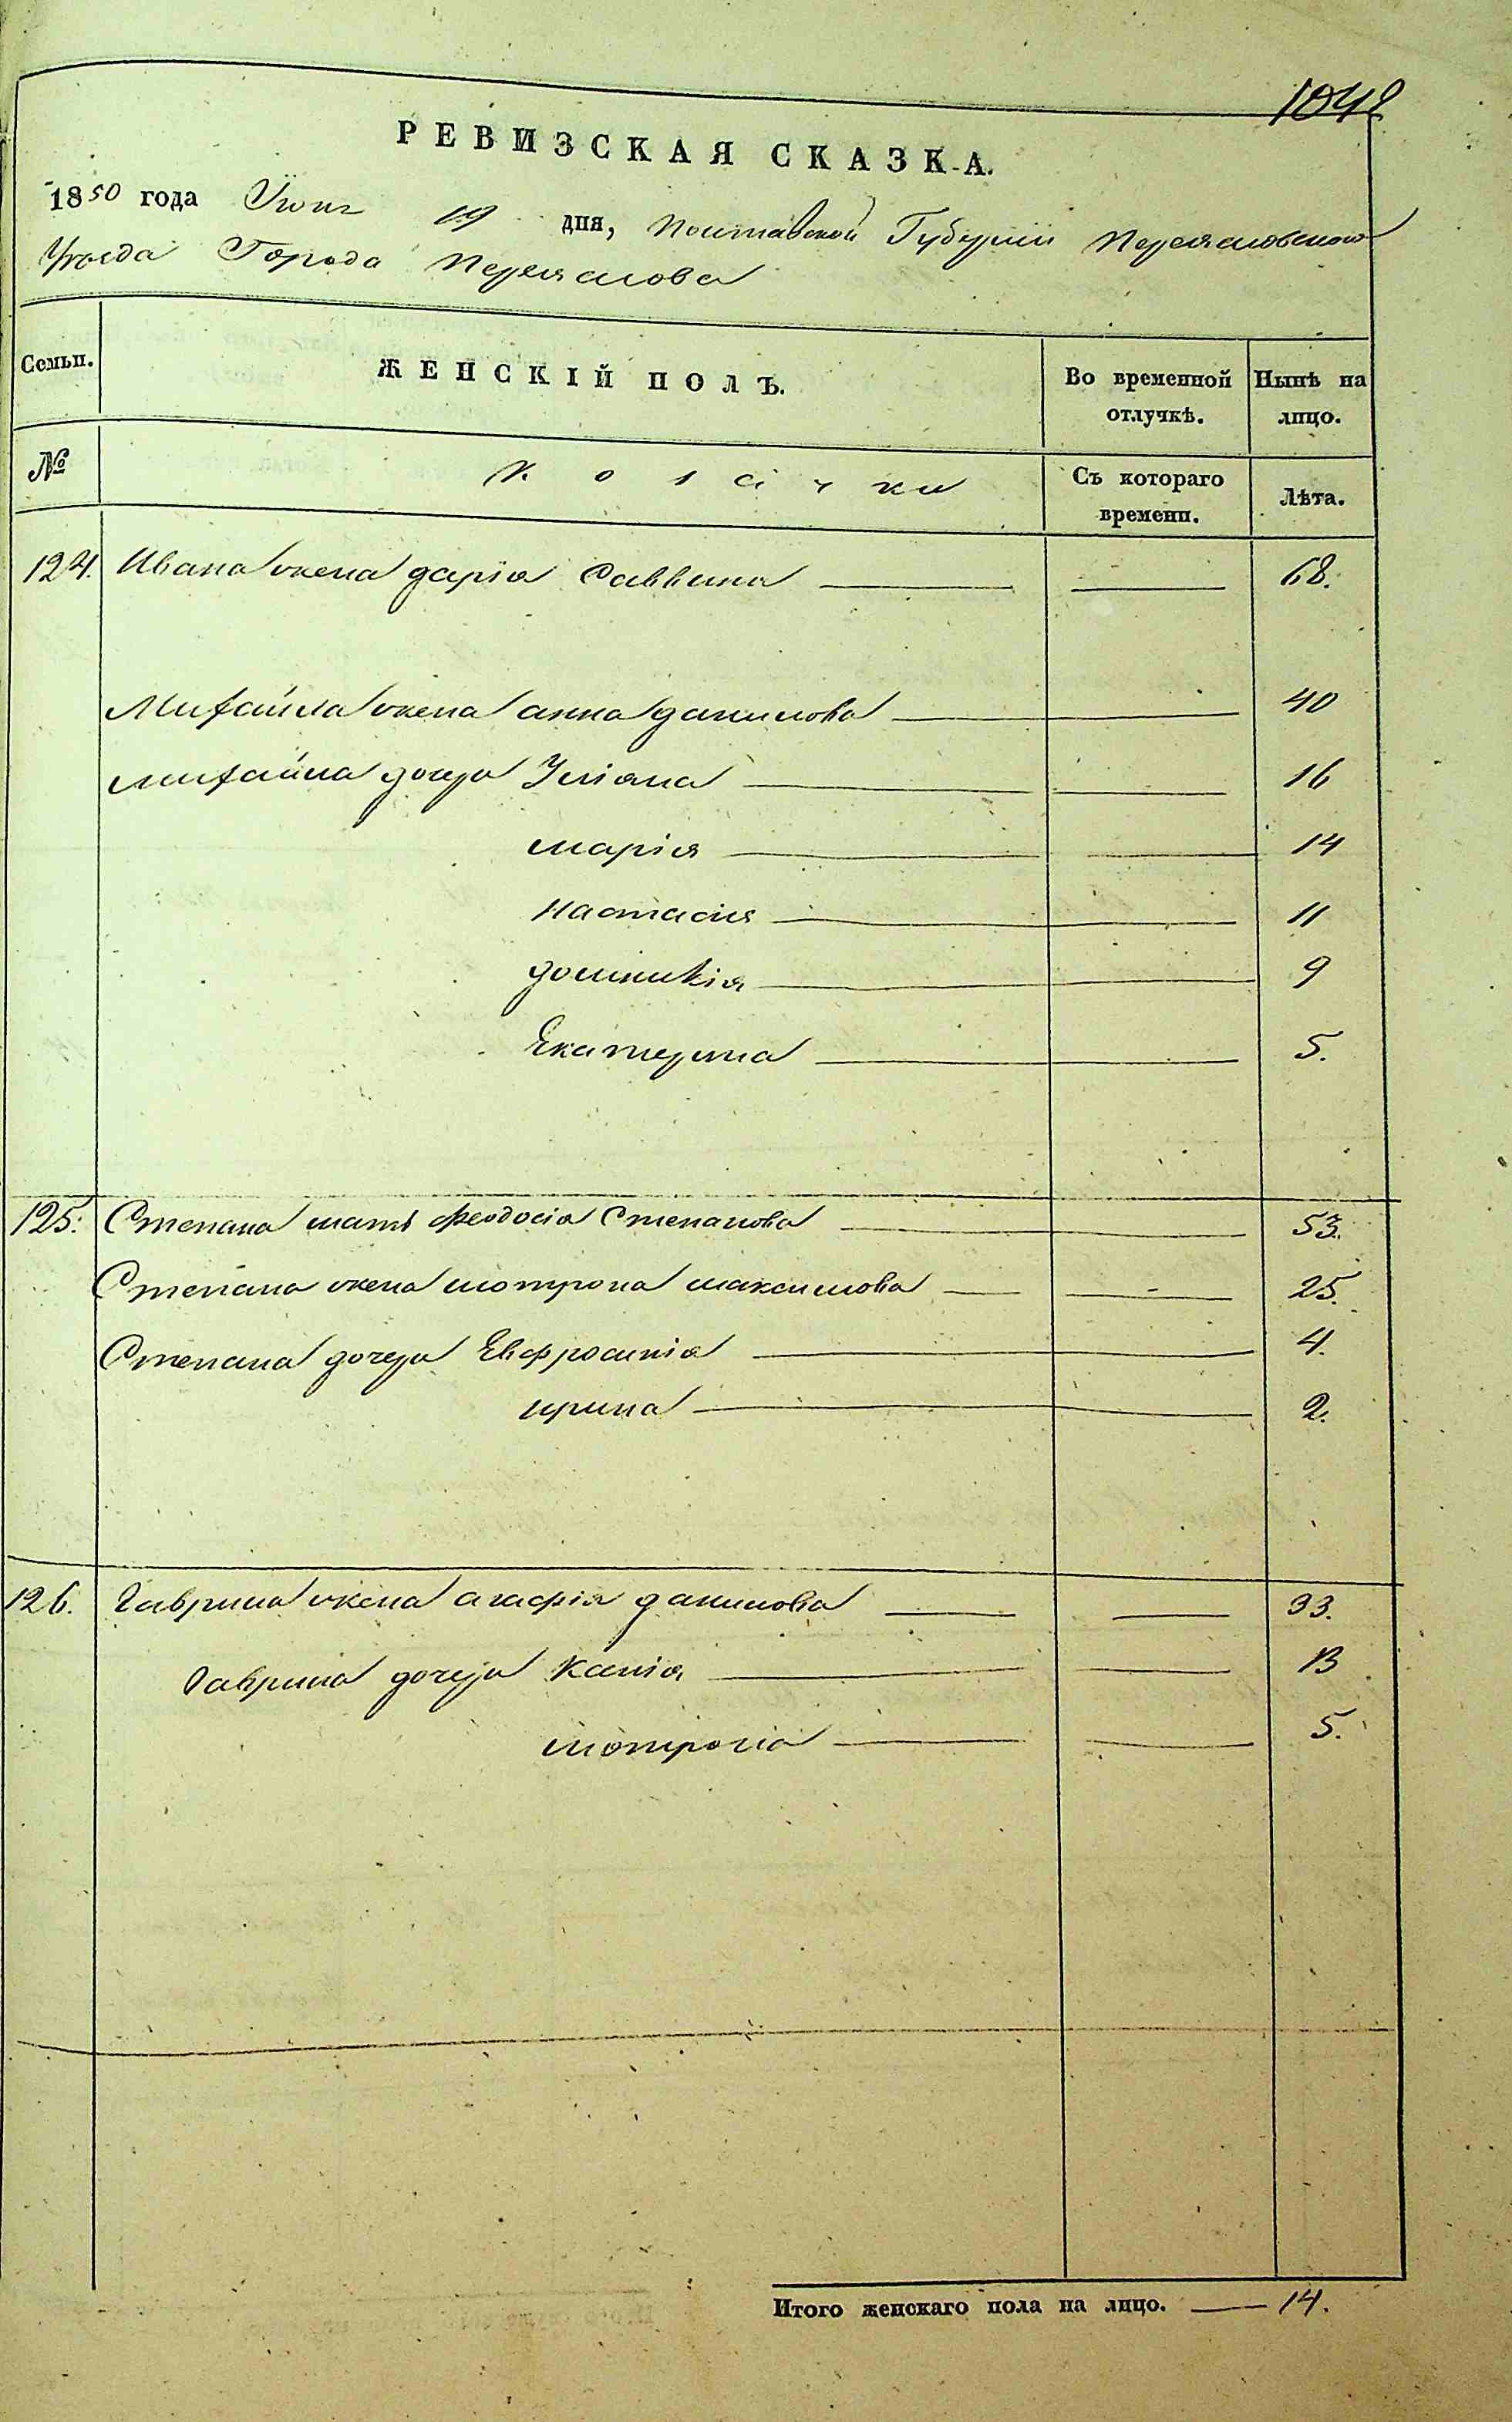 1042
РЕВИЗСКАЯ СКАЗКА.
1850 года Іюня 19 дня, Полтавской Губерніи Переяславского
Уѣзда Города Переяслова
Семьи. ЖЕНСКІЙ ПОЛЪ. Во временной отлучкѣ. Нынѣ на лицо.
№ Козачки Съ котораго времени. Лѣта.
124. Ивана жена дарія Саввина — — 68.
Михайла жена анна данилова — — 40
михайла дочери Уліяна — — 16
марія — — 14
настасия — — 11
домникія — — 9
Екатерина — — 5.
125. Степана мать феодосія Степанова — — 53.
Степана жена мотрона максимова — — 25.
Степана дочери Евфросинія — — 4.
ирина — — 2.
126. Гаврила жена агафія данилова — — 33.
Гаврила дочери — — 13
мотрона — — 5.
Итого женскаго пола на лицо. — 14.